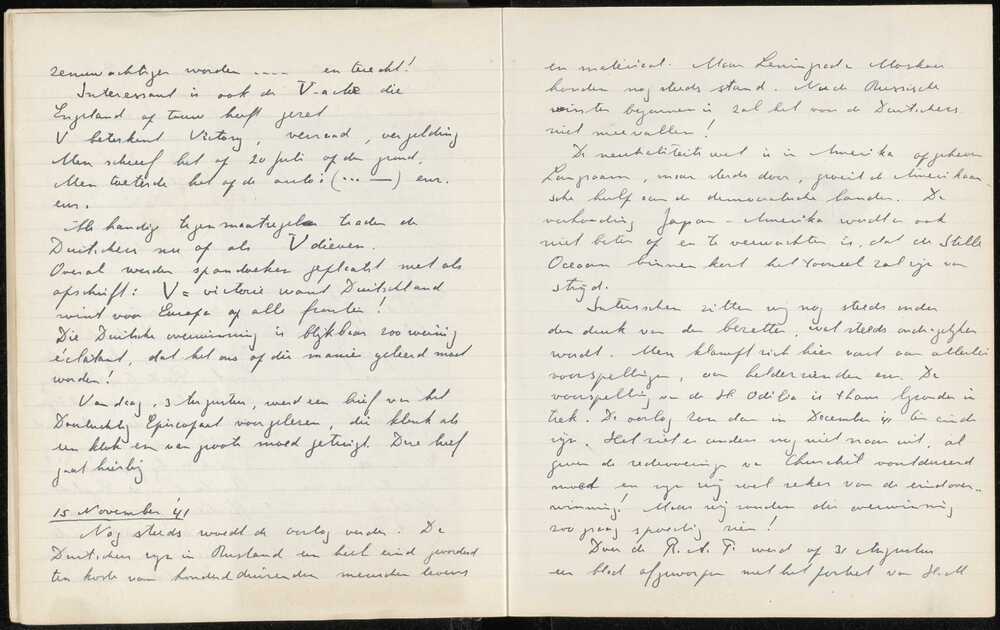 zenuwachtiger worden .... en terecht!
Interessant is ook de V-actie die
Engeland op touw heeft gezet
V beteekent Victory, verraad, vergelding
Men schreef het op 20 Juli op den grond,
Men toeterde het op de auto: (... —) enz.
enz.
Als handig tegenmaatregel traden de
Duitschers nu op als V dieven.
Overal werden spandoeken geplaatst met als
opschrift: V = victorie want Duitschland
wint voor Europa op alle fronten!
Die Duitsche overwinning is blijkbaar zoo weinig
éclatant, dat het ons op die manier geleerd moet
worden!
Vandaag, 3 Augustus, werd een brief van het
Doorluchtig Episcopaat voorgelezen, die klonk als
een klok en van groote moed getuigt. Deze brief
gaat hierbij
15 November '41
Nog steeds woedt de oorlog verder. De
Duitschers zijn in Rusland een heel eind gevorderd
ten koste van honderdduizenden menschen levens
en materiaal. Maar Leningrad en Moskou
houden nog steeds stand. Nu de Russische
winter begonnen is zal het voor de Duitschers
niet meevallen!
De neutraliteitswet is in Amerika opgeheven
Langzaam, maar steds door, groeit de Amerikaan-
sche hulp aan de democratische landen. De
verhouding Japan - Amerika wordt er ook
niet beter op en te verwachten is, dat de Stille
Oceaan binnen kort het tooneel zal zijn van
strijd.
Intusschen zitten wij nog steeds onder
den druk van den bezetter, wat steeds ondragelijker
wordt. Men klampt zich hier vast aan allerlei
voorspellingen, van helderzienden enz. De
voorspelling van de H. Odilia is thans bijzonder in
trek. De oorlog zou dan in December '41 ten einde
zijn. Het ziet er anders nog niet naar uit, al
geven de redevoeringen van Churchil voortdurend
moed en zijn wij wel zeker van de eindover-
winning! Maar wij zouden die overwinning
zoo graag spoedig zien!
Door de R.A.F. werd op 31 Augustus
een blad afgeworpen met het portret van H.M